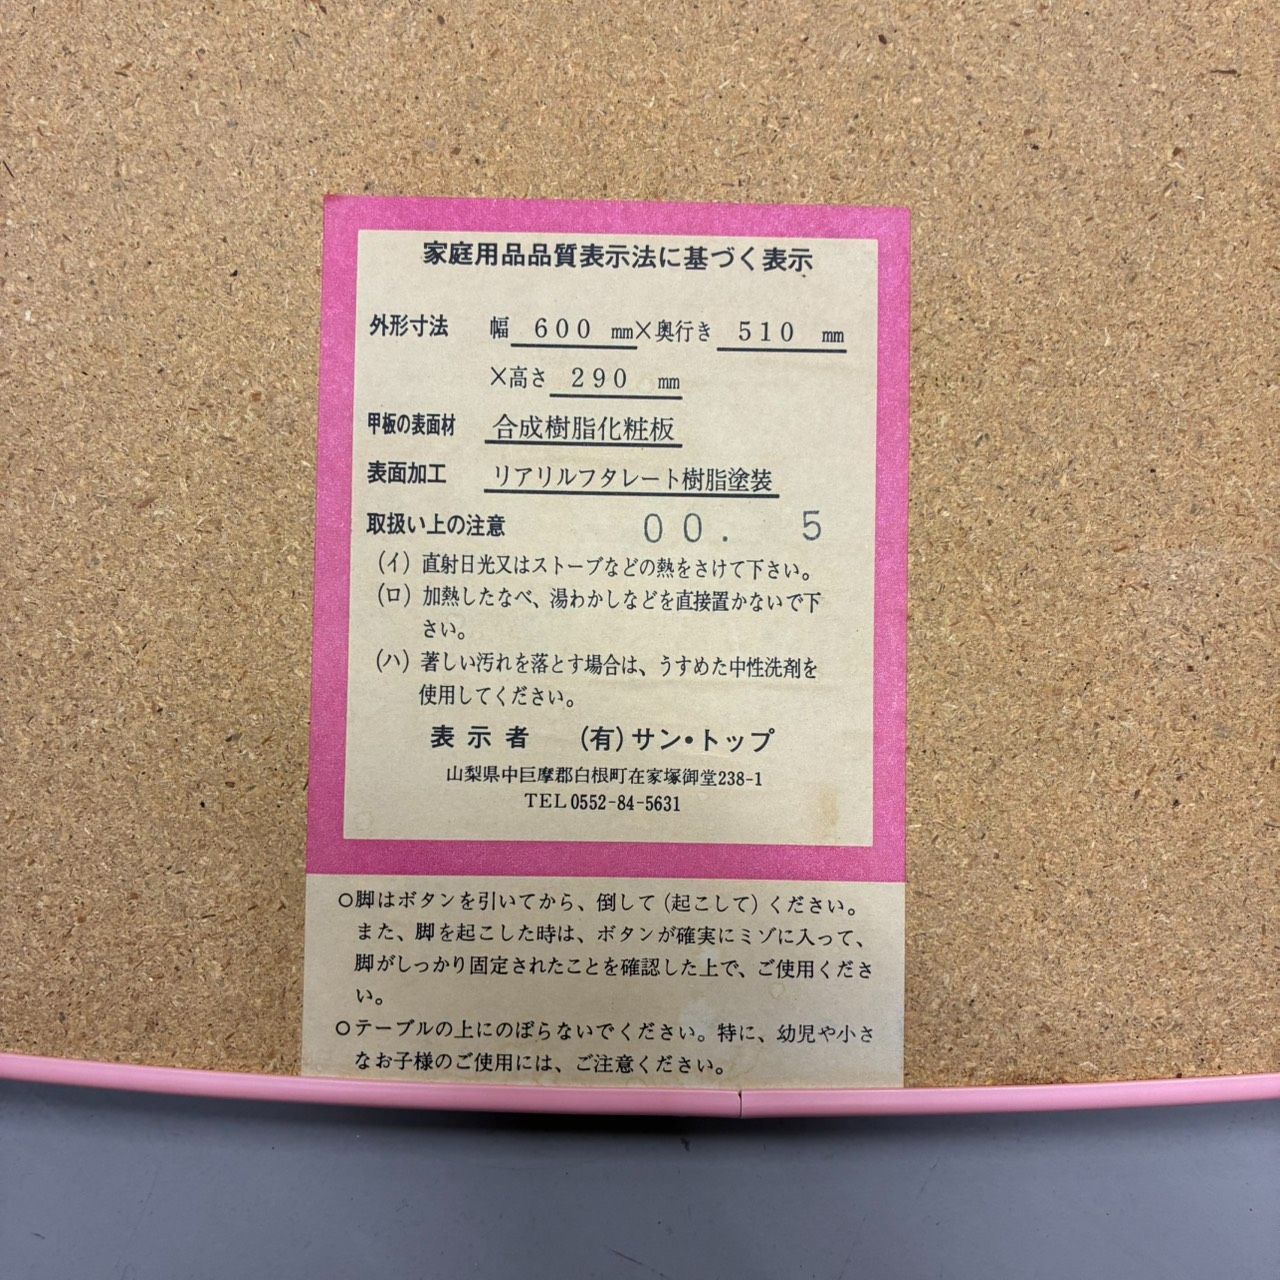 家庭用品品質表示法に基づく表示
外形寸法 幅 600 mm×奥行き 510 mm
×高さ 290 mm
甲板の表面材 合成樹脂化粧板
表面加工 リアリルフタレート樹脂塗装
取扱い上の注意 00. 5
(イ) 直射日光又はストーブなどの熱をさけて下さい。
(ロ) 加熱したなべ、湯わかしなどを直接置かないで下
さい。
(ハ) 著しい汚れを落とす場合は、うすめた中性洗剤を
使用してください。
表示者 (有)サン・トップ
山梨県中巨摩郡白根町在家塚御堂238-1
TEL0552-84-5631
○脚はボタンを引いてから、倒して(起こして)ください。
また、脚を起こした時は、ボタンが確実にミゾに入って、
脚がしっかり固定されたことを確認した上で、ご使用くださ
い。
○テーブルの上にのぼらないでください。特に、幼児や小さ
なお子様のご使用には、ご注意ください。